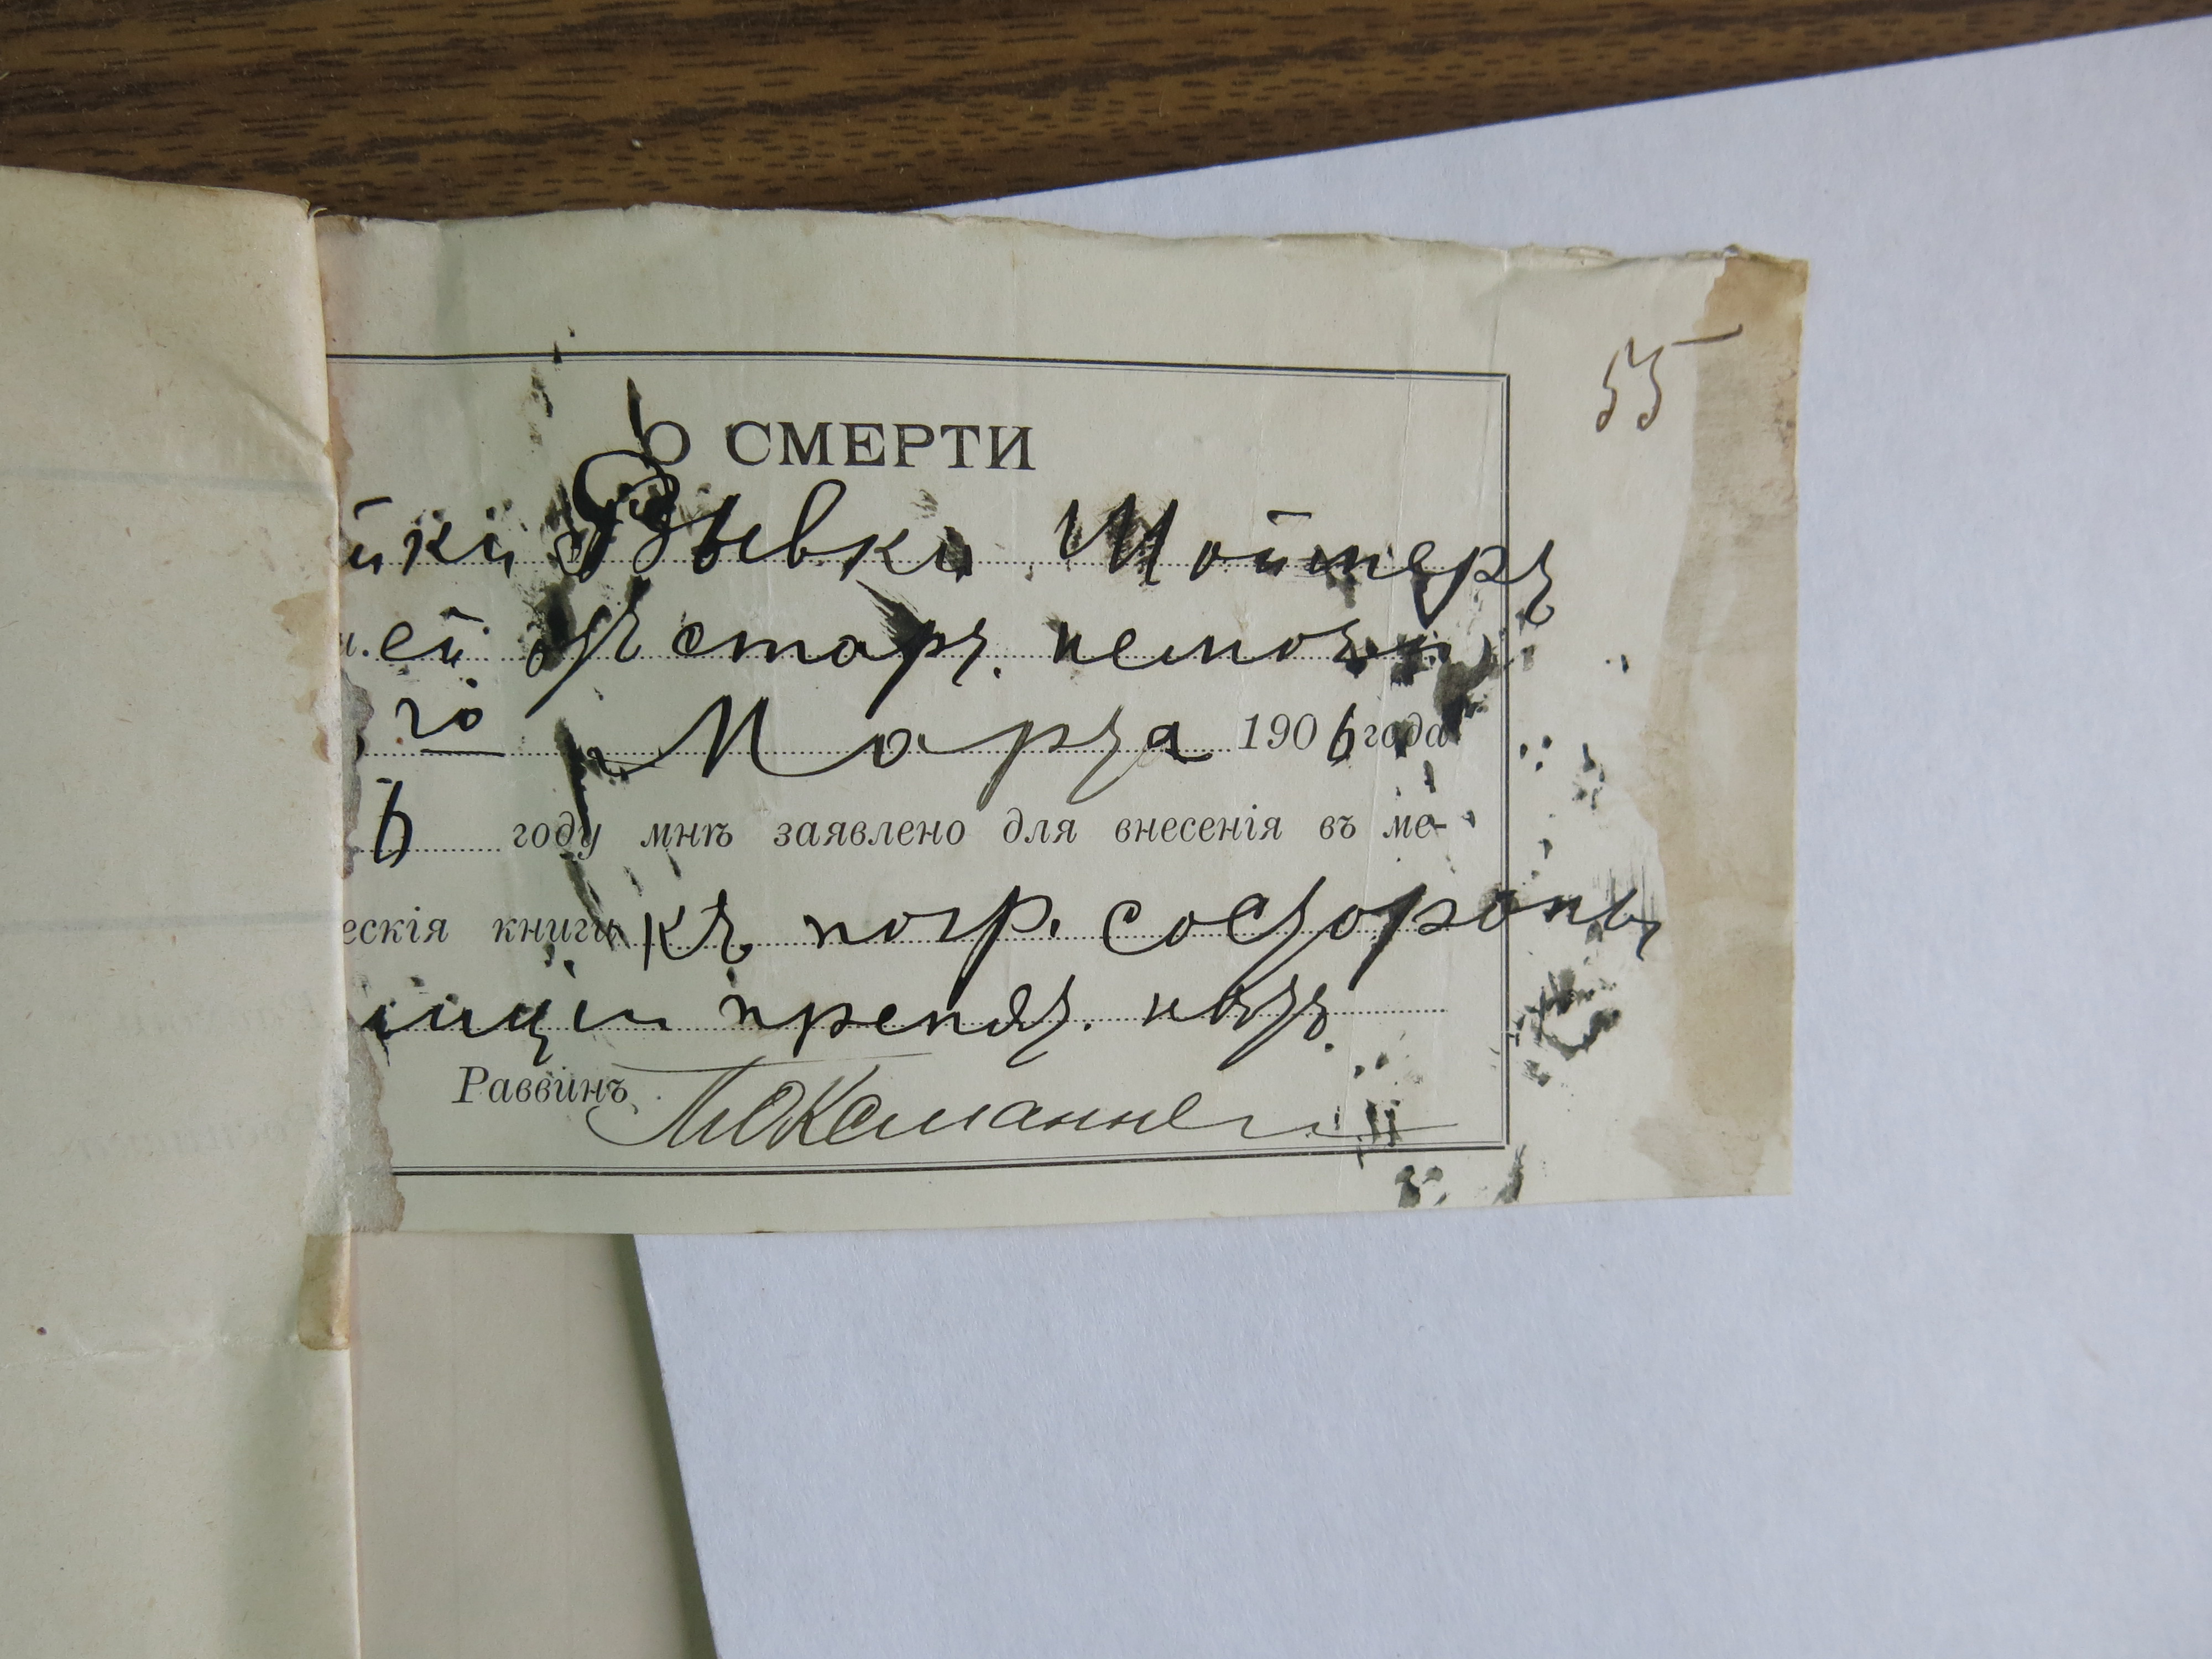 55
О СМЕРТИ
йки Рывки Шойтеръ
ей отъ старч. немощи
го Марта 1906 года
6 году мнѣ заявлено для внесенія въ ме-
ескія книги къ погр. со стороны
иціи препят. нѣтъ.
Раввинъ